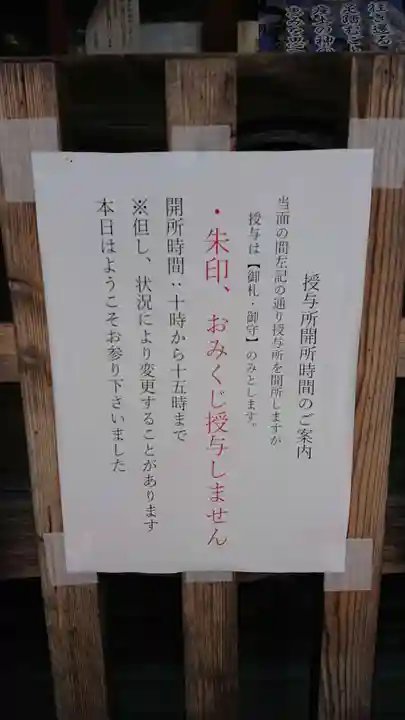 往き巡る
足踏むごと
産土の神
恵みを思
授与所開所時間のご案内
当面の間左記の通り授与所を開所しますが
授与は【御札・御守】のみとします。
・朱印、おみくじ授与しません
開所時間：十時から十五時まで
※但し、状況により変更することがあります
本日はようこそお参り下さいました